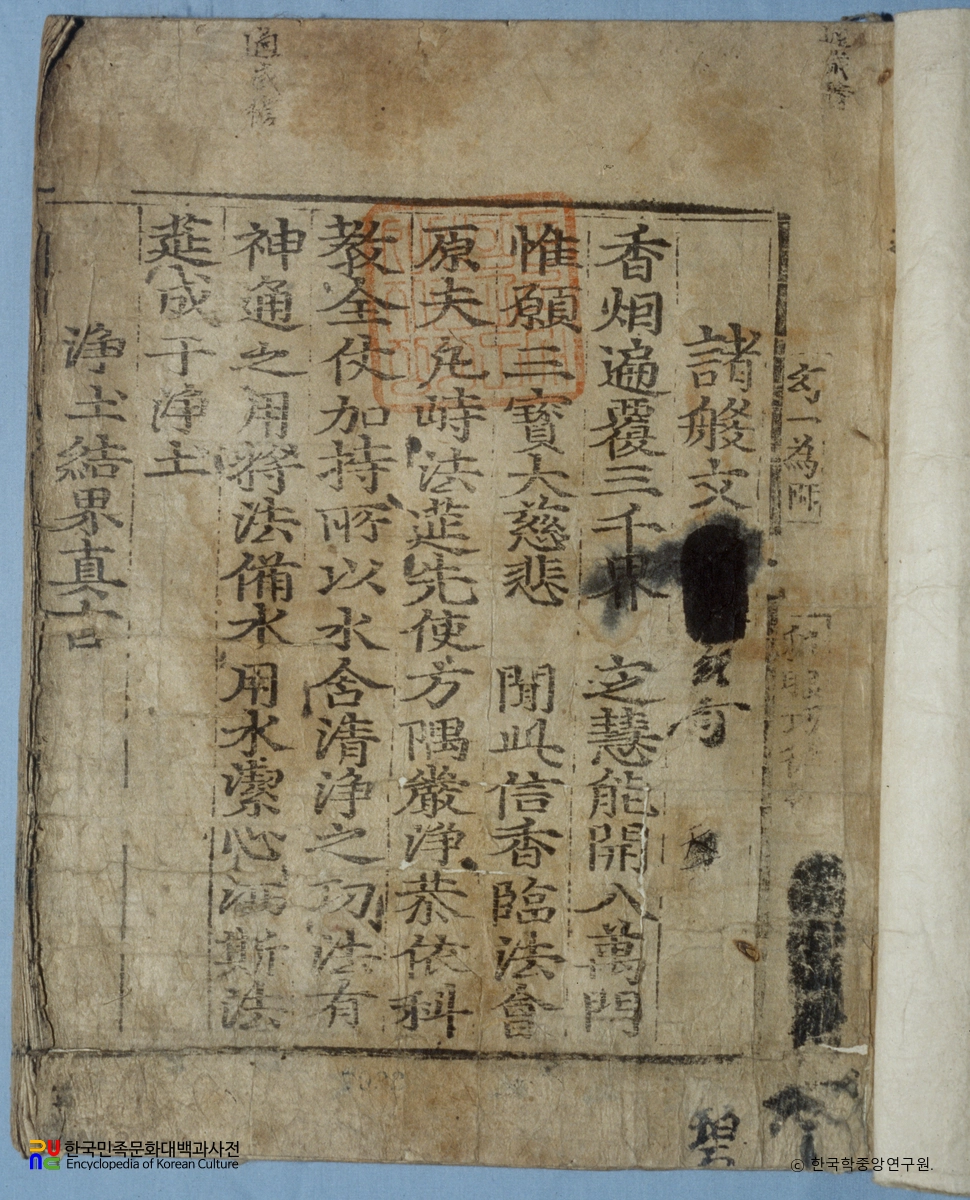 諸般文
香烟遍覆三千界 定慧能開八萬門
惟願三寶大慈悲 聞此信香臨法會
原夫凡峙法莚先使方隅嚴淨恭依科
教全仗加持所以水含清淨之功法有
神通之用将法備水用水潔心洒斯法
莚成于淨土
淨土結界真言
玄一為師
聖
한국민족문화대백과사전
Encyclopedia of Korean Culture
© 한국학중앙연구원.